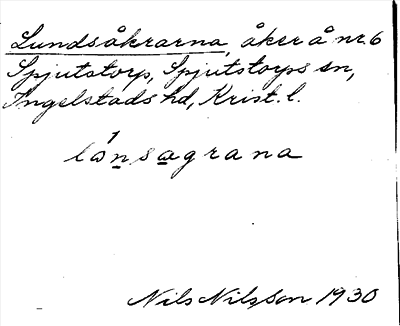 Lundsåkrarna, åker å nr. 6
Spjutstorp, Spjutstorps sn,
Ingelstads hd, Krist. l.
lo̍nsagrana
Nils Nilsson 1930